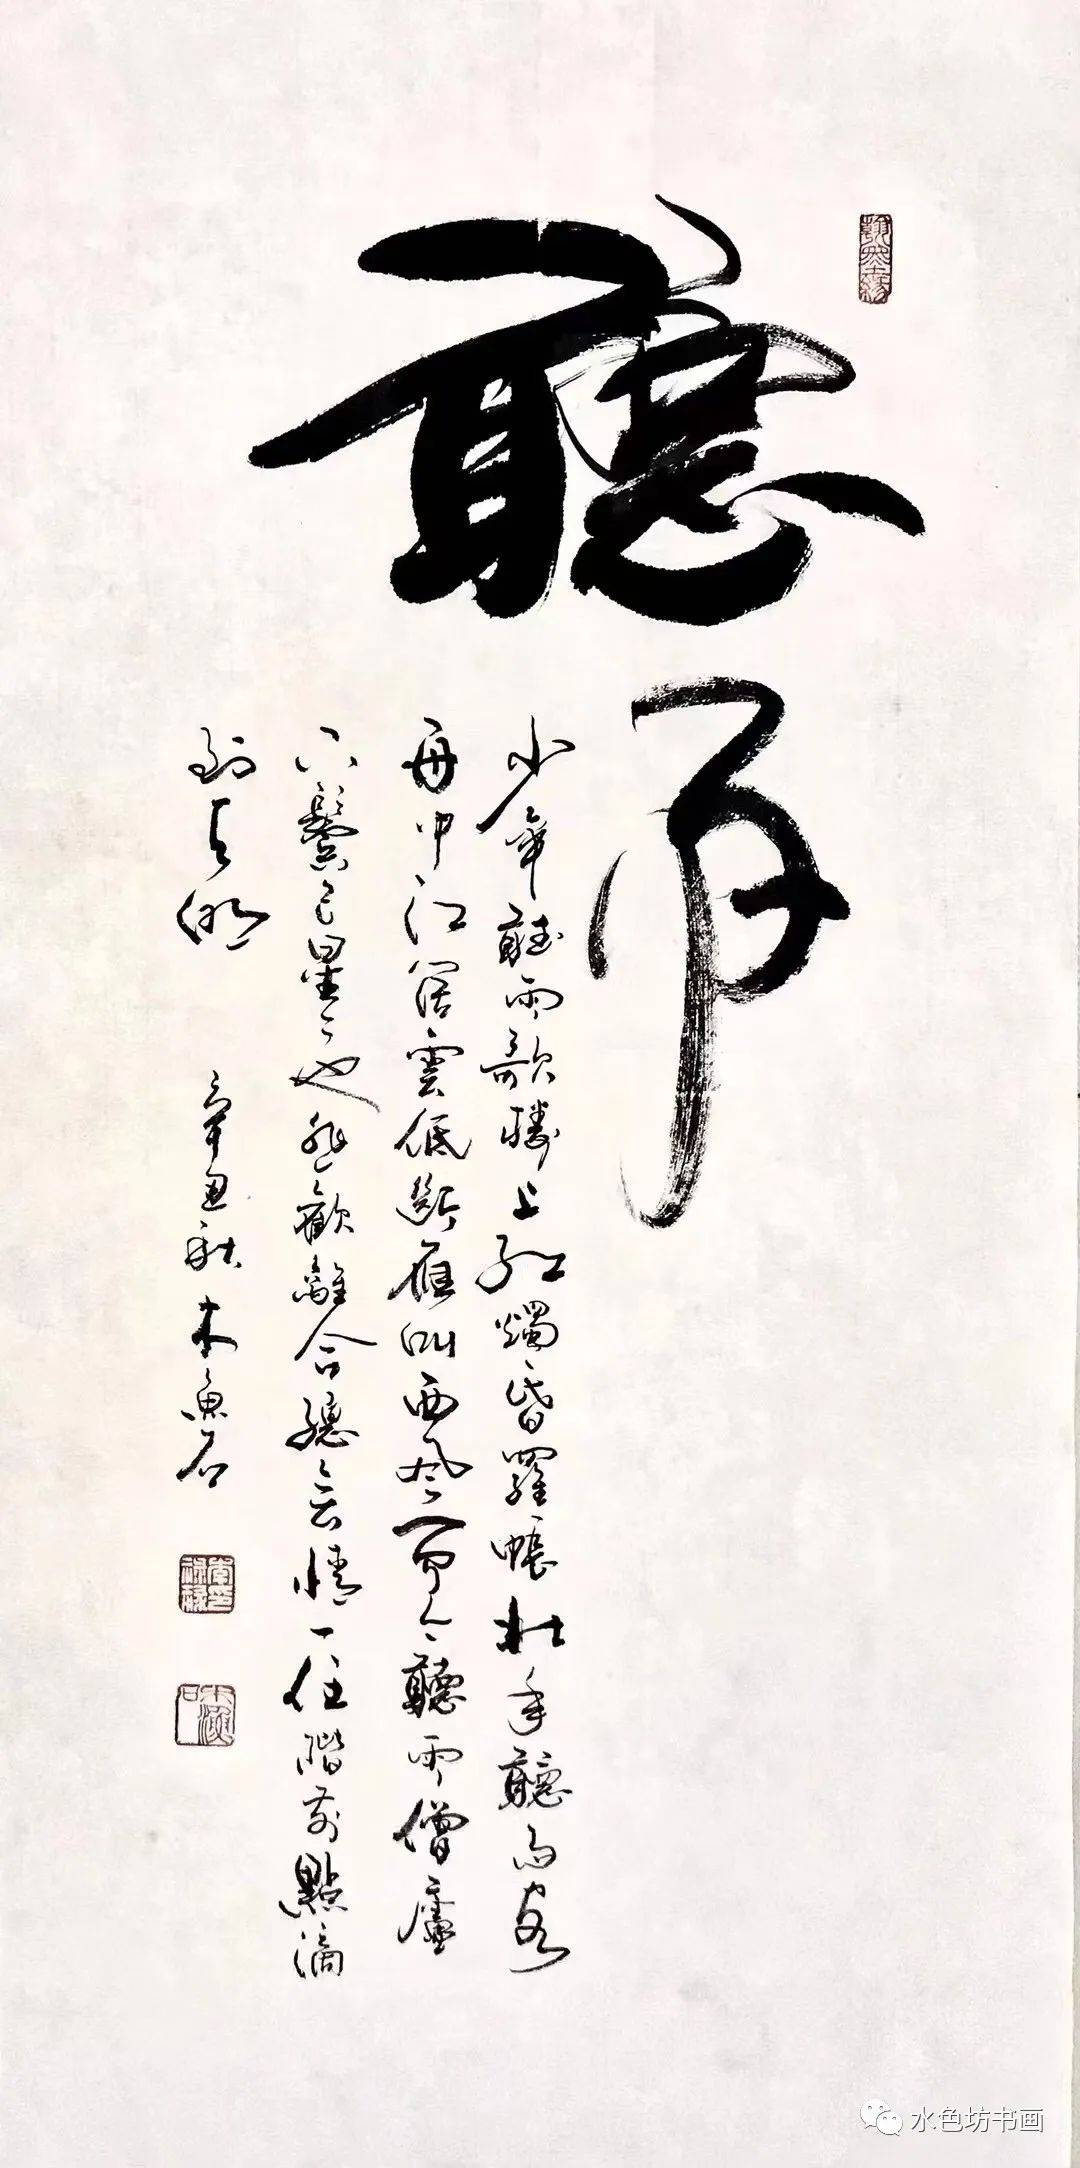 聽雨
少年聽雨歌樓上紅燭昏羅帳壯年聽雨客
舟中江闊雲低斷雁叫西風而今聽雨僧廬
下鬢已星星也悲歡離合總無情一任階前點滴
到天明 辛丑秋木魚石
水色坊书画